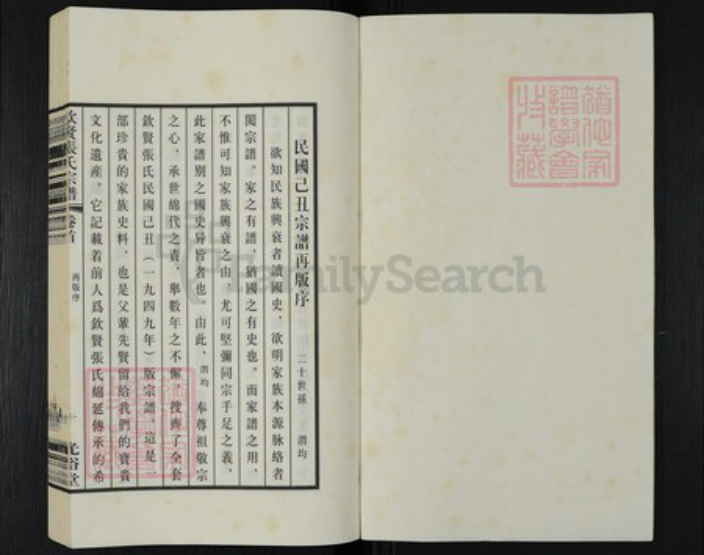 民國己丑宗譜再版序
二十世孫 渭均
欲知民族興衰者讀國史，欲明家族本源脉絡者
閱宗譜。家之有譜，猶國之有史也。而家譜之用，
不惟可知家族興衰之由，尤可堅彌同宗手足之義，
此家譜别之國史异旨者也。由此，渭均奉尊祖敬宗
之心，承世綿代之責，舉數年之不懈，搜齊了全套
欽賢張氏民國己丑（一九四九年）版宗譜。這是一
部珍貴的家族史料，也是父輩先賢留給我們的寶貴
文化遺産。它記載着前人爲欽賢張氏綿延傳承的希
欽賢張氏宗譜 卷首 再版序 光裕堂
猶他家
譜學會
收藏
FamilySearch